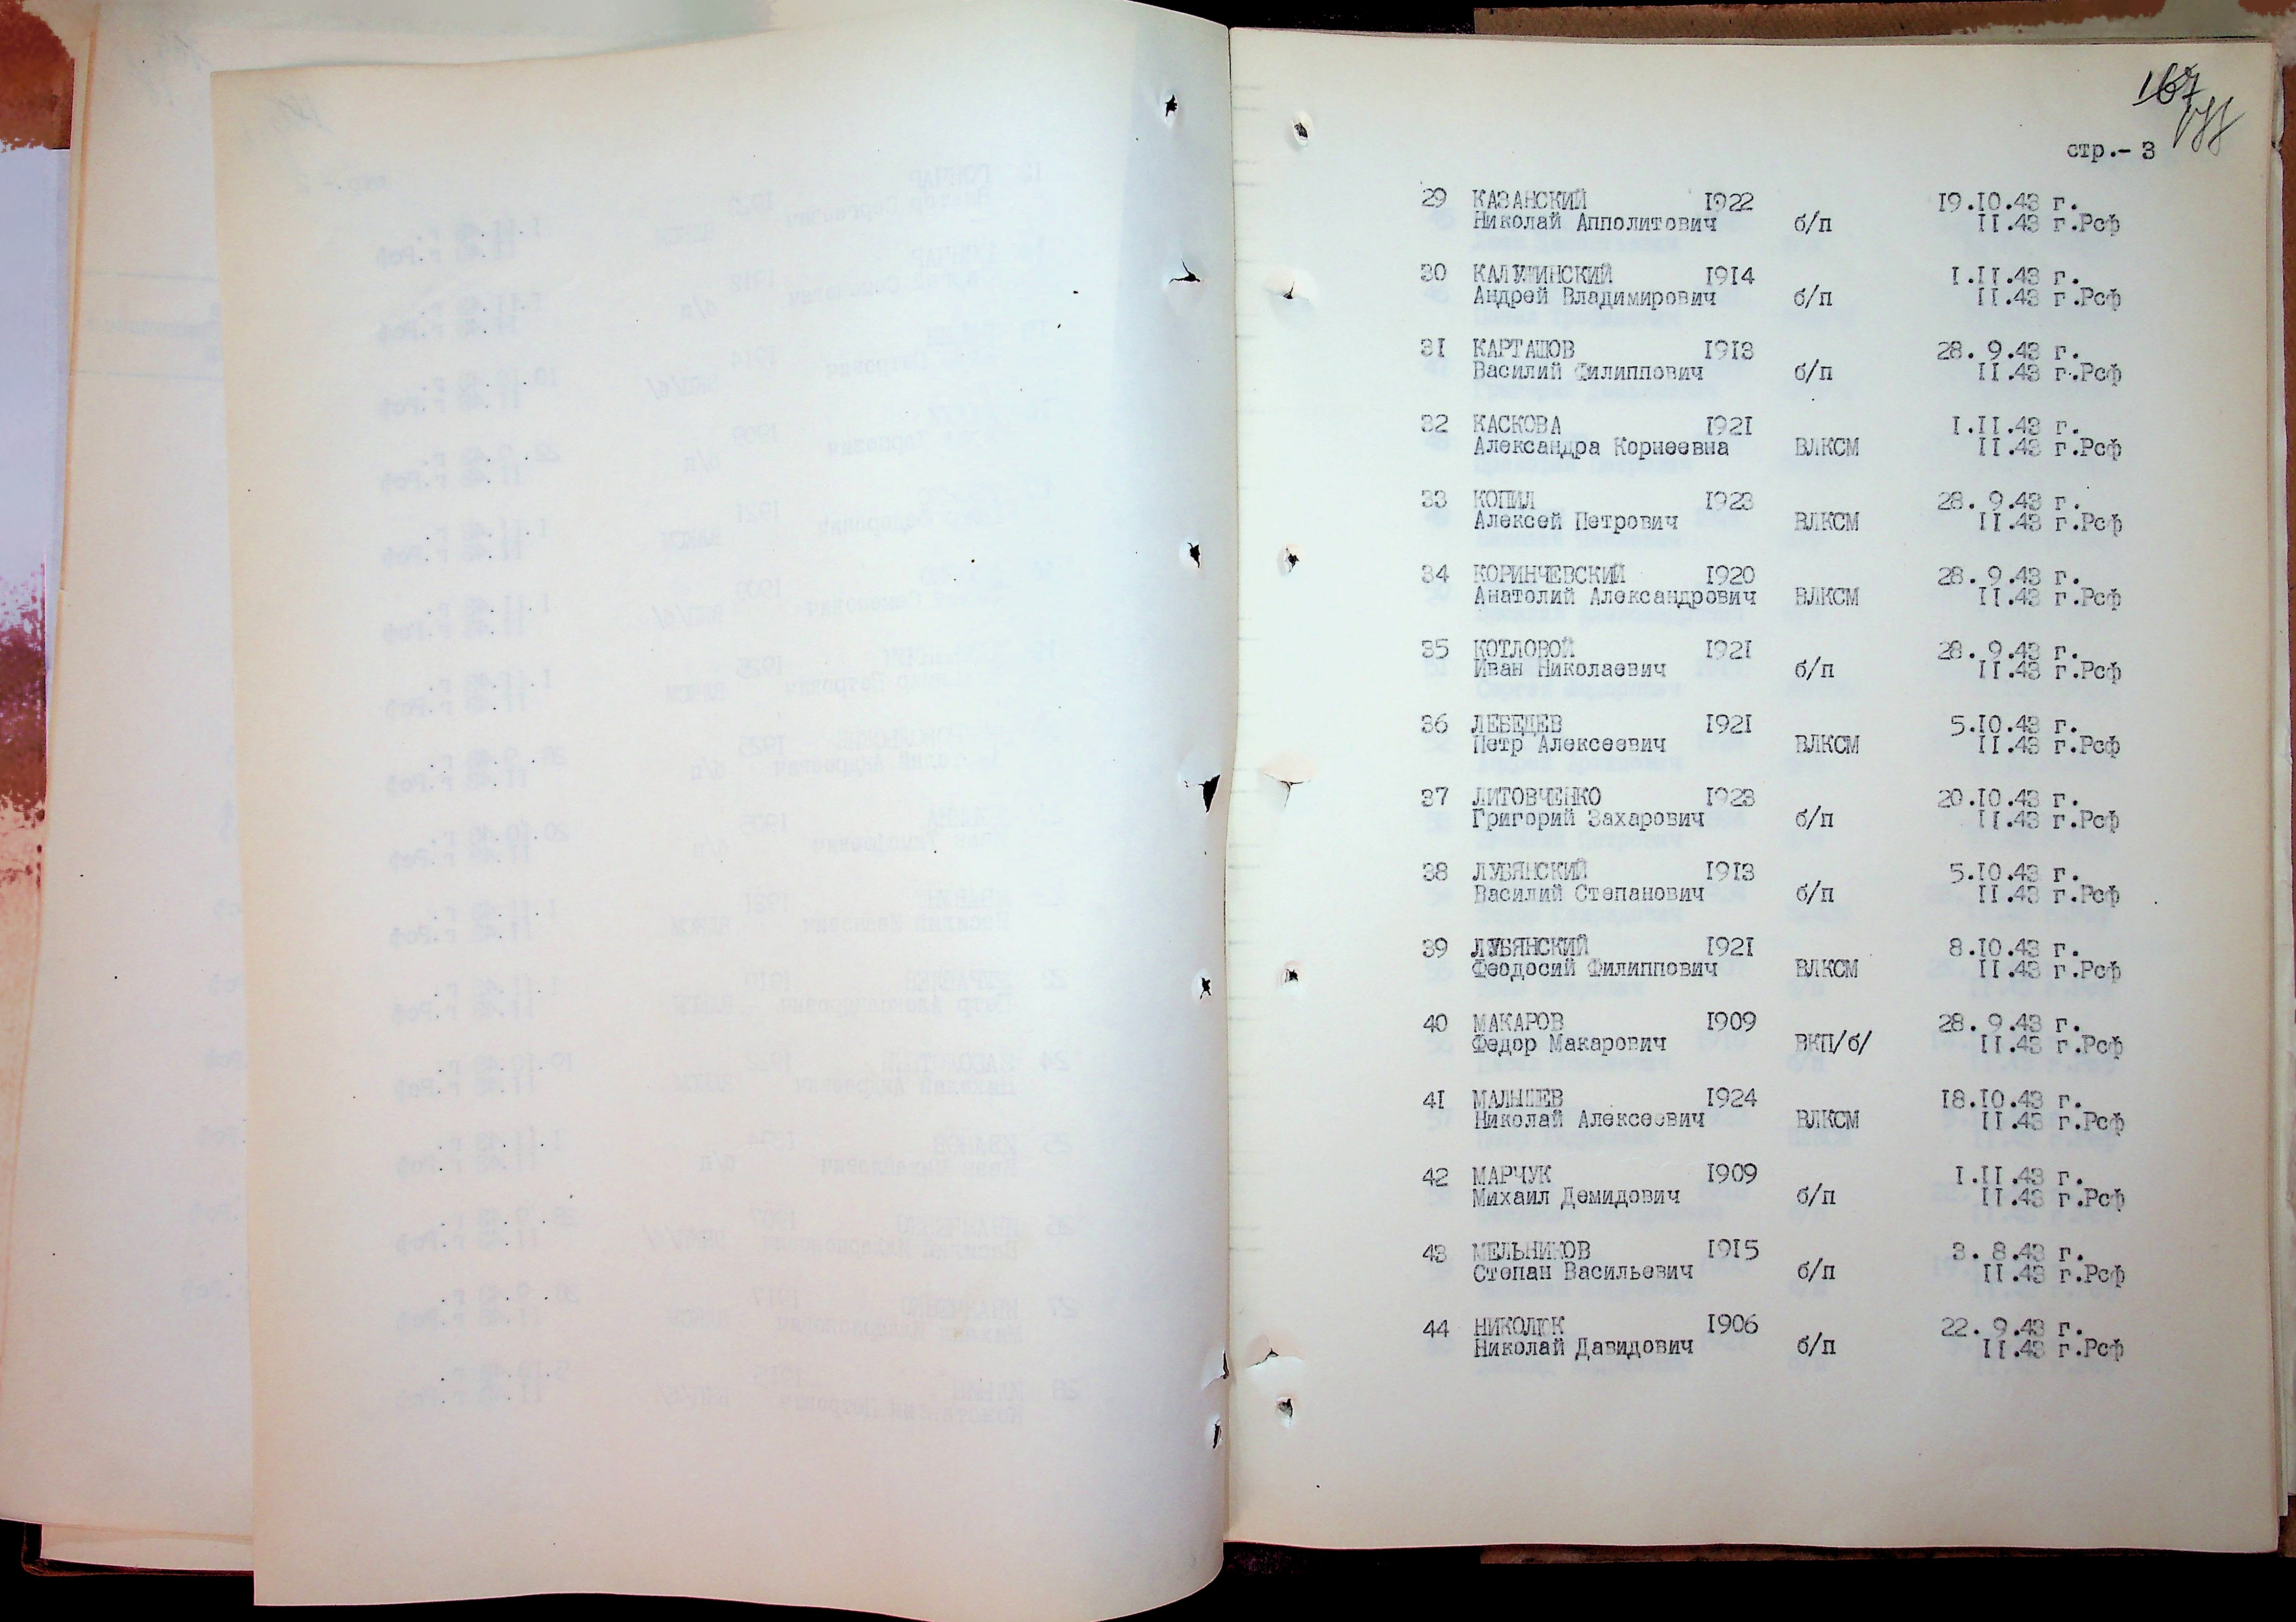 167
стр.- 3
29 КАЗАНСКИЙ 1922 19.10.43 г.
Николай Апполитович б/п 11.43 г.Рсф
30 1914 1.11.43 г.
Андрей Владимирович б/п 11.43 г.Рсф
31 КАРТАШОВ 1913 28. 9.43 г.
Василий Филиппович б/п 11.43 г.Рсф
32 КАСКОВА 1921 1.11.43 г.
Александра Корнеевна ВЛКСМ 11.43 г.Рсф
33 КОПИЛ 1923 28. 9.43 г.
Алексей Петрович ВЛКСМ 11.43 г.Рсф
34 КОРИНЧЕВСКИЙ 1920 28. 9.43 г.
Анатолий Александрович ВЛКСМ 11.43 г.Рсф
35 КОТЛОВОЙ 1921 28. 9.43 г.
Иван Николаевич б/п 11.43 г.Рсф
36 ЛЕБЕДЕВ 1921 5.10.43 г.
Петр Алексеевич ВЛКСМ 11.43 г.Рсф
37 ЛИТОВЧЕНКО 1923 20.10.43 г.
Григорий Захарович б/п 11.43 г.Рсф
38 ЛУБЯНСКИЙ 1913 5.10.43 г.
Василий Степанович б/п 11.43 г.Рсф
39 ЛУБЯНСКИЙ 1921 8.10.43 г.
Феодосий Филиппович ВЛКСМ 11.43 г.Рсф
40 МАКАРОВ 1909 28. 9.43 г.
Федор Макарович ВКП/б/ 11.43 г.Рсф
41 МАЛЫШЕВ 1924 18.10.43 г.
Николай Алексеевич ВЛКСМ 11.43 г.Рсф
42 МАРЧУК 1909 1.11.43 г.
Михаил Демидович б/п 11.43 г.Рсф
43 МЕЛЬНИКОВ 1915 3. 8.43 г.
Степан Васильевич б/п 11.43 г.Рсф
44 НИКОЛЮК 1906 22. 9.43 г.
Николай Давидович б/п 11.43 г.Рсф